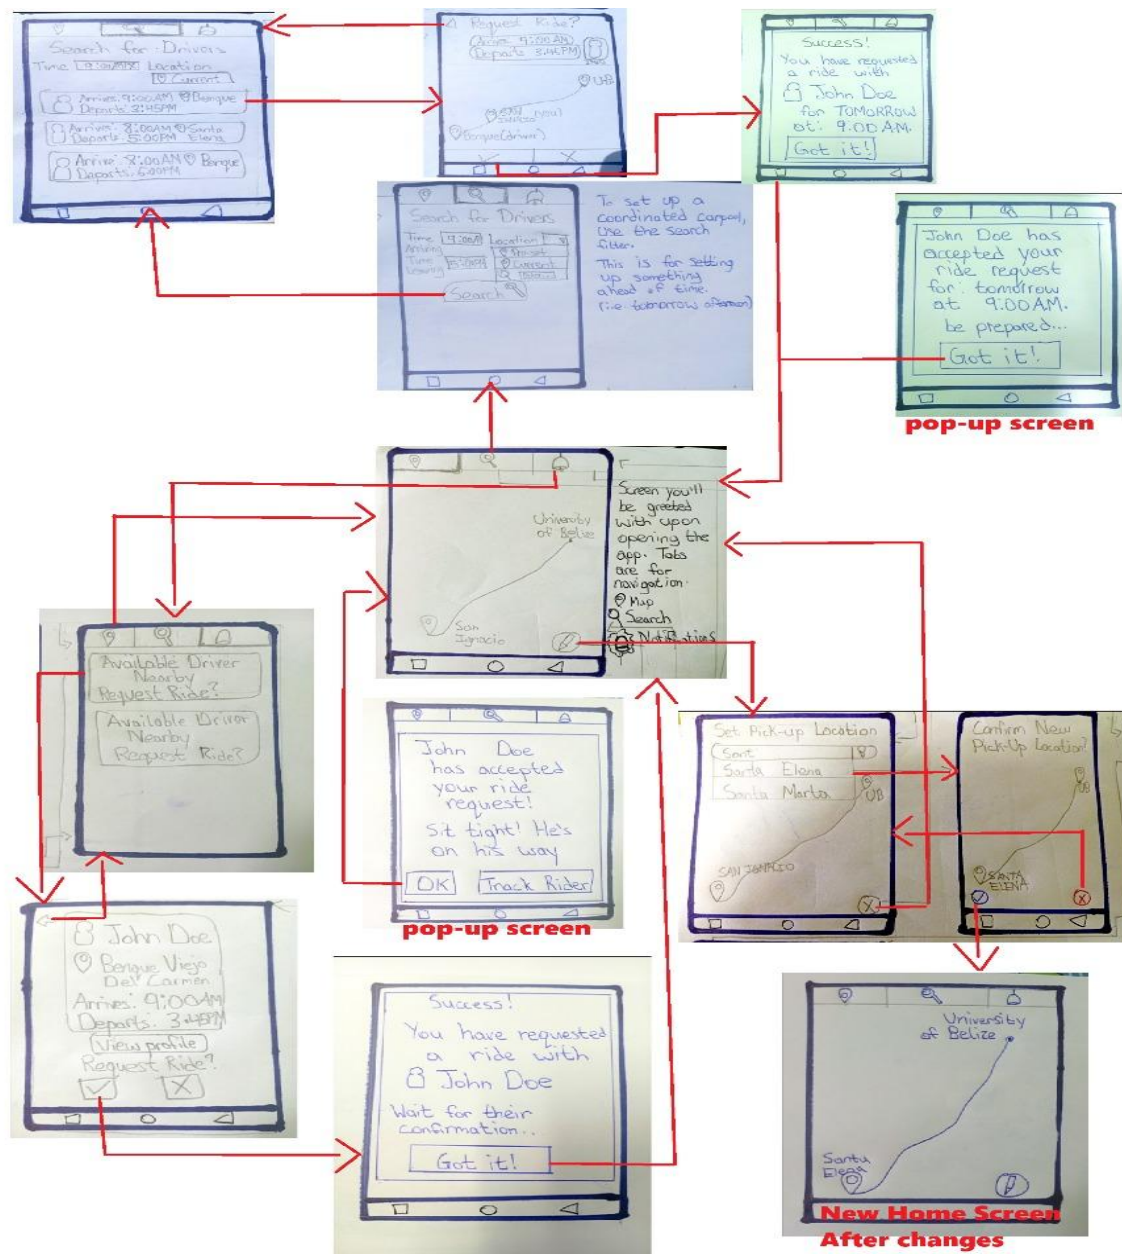 Search for Drivers
Time 9:00AM Location
Current
Arrives: 9:00AM Benque
Departs: 3:45PM
Arrives: 8:00AM Santa
Departs: 5:00PM Elena
Arrive: 8:00AM Benque
Departs: 6:00PM
Request Ride?
Arrive: 9:00AM
Departs 3:45PM
UB
Benque (driver)
Success!
You have requested
a ride with
John Doe
for TOMORROW
at: 9:00 A.M.
Got it!
Search for Drivers
Time 9:00AM Location
Arriving
Time 5:00PM Current
Leaving
Search
To set up a
coordinated carpool,
use the search
filter.
This is for setting
up something
ahead of time.
(i.e. tomorrow afternoon)
John Doe has
accepted your
ride request
for: tomorrow
at 9:00 A.M.
be prepared...
Got it!
pop-up screen
University
of Belize
San
Ignacio
Screen you'll
be greeted
with upon
opening the
app. Tabs
are for
navigation.
Map
Search
Notifications
Available Driver
Nearby
Request Ride?
Available Driver
Nearby
Request Ride?
John Doe
has accepted
your ride
request!
Sit tight! He's
on his way
OK Track Rider
pop-up screen
Set Pick-up Location
Sant
Santa Elena
Santa Marta
UB
SAN IGNACIO
Confirm New
Pick-Up Location?
UB
SANTA
ELENA
John Doe
Benque Viejo
Del Carmen
Arrives: 9:00AM
Departs: 3:45PM
View profile
Request Ride?
Success!
You have requested
a ride with
John Doe
Wait for their
confirmation...
Got it!
University
of Belize
Santa
Elena
New Home Screen
After changes